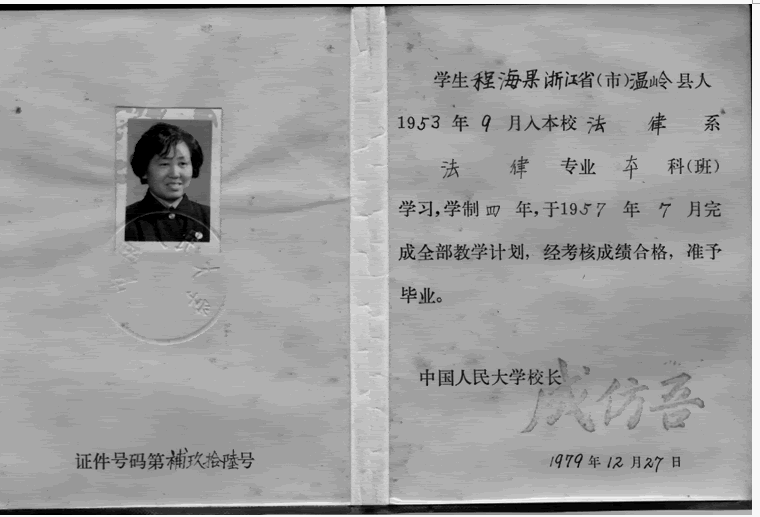 证件号码第補玖拾陆号
学生程海果浙江省(市)温岭县人
1953年9月入本校法律系
法律专业本科(班)
学习,学制四年,于1957年7月完
成全部教学计划,经考核成绩合格,准予
毕业。
中国人民大学校长
成仿吾
1979年12月27日